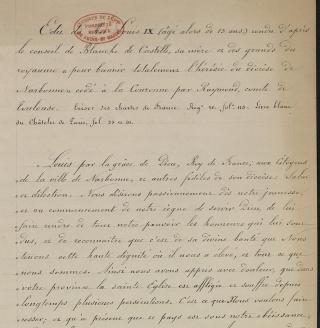 Edit du Louis IX (âgé alors de 13 ans) rendu d'après
le conseil de Blanche de Castille, sa mère et des grands du
royaume pour bannir totalement l'hérésie du diocèse de
Narbonne cédé à la Couronne par Raymond, comte de
toulouse. Trésor des chartes de France. Reg. fol. Livre blanc
du Châtelet de Paris, fol.
Louis par la grâce de Dieu, Roy de France, aux Citoyens
de la ville de Narbonne, et autres fidèles de son diocèse. Salut
et dilection. Nous désirons passionnément dès notre jeunesse,
et au commencement de notre règne de servir Dieu, de lui
faire rendre de tout notre pouvoir les honneurs qui lui sont
dus, et de reconnaître que c'est de sa divine bonté que Nous
tenons cette haute dignité où il nous a élevé, et tout ce que
nous sommes. Ainsi nous avons appris avec douleur, que dans
votre province la sainte Eglise est affligée et souffre depuis
longtemps plusieurs persécutions. C'est ce que Nous voulons faire
cesser; et qu'à présent que ce pays est sous notre obéissance,